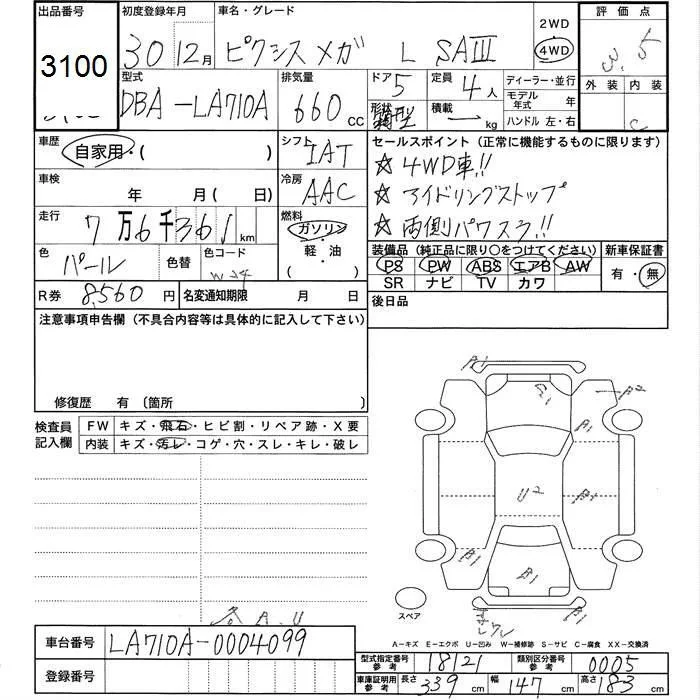 出品番号 初度登録年月 車名・グレード 2WD 評価点
3100 30 12月 ピクシス メガ L SAⅢ 4WD 3.5
型式 排気量 ドア 定員 ディーラー・並行 外装 内装
DBA-LA710A 660cc 5 4人 モデル年式 年
形状 箱型 積載 kg ハンドル 左・右 C
車歴 自家用・( ) シフト IAT セールスポイント(正常に機能するものに限ります)
☆4WD車!!
車検 年 月(日) 冷房 AAC ☆アイドリングストップ
走行 7万6千361km 燃料 ガソリン・軽・油・( ) ☆両側パワスラ!!
色 パール 色替 色コード W24 装備品(純正品に限り○をつけてください) 新車保証書
PS PW ABS エアB AW 有・無
SR ナビ TV カワ
R券 8,560円 名変通知期限 月 日 後日品
注意事項申告欄(不具合内容等は具体的に記入して下さい)
修復歴 有 〔箇所 〕
検査員記入欄 FW キズ・飛石・ヒビ割・リペア跡・X要
内装 キズ・汚レ・コゲ・穴・スレ・キレ・破レ
A1
A2
A1
U2
B1
スペア
A・U
A−キズ E−エクボ U−凹み W−補修跡 S−サビ C−腐食 XX−交換済
車台番号 LA710A-0004099
型式指定番号 参考 18121 類別区分番号 参考 0005
登録番号 車庫証明用 参考 長さ 339 幅 147 高さ 183